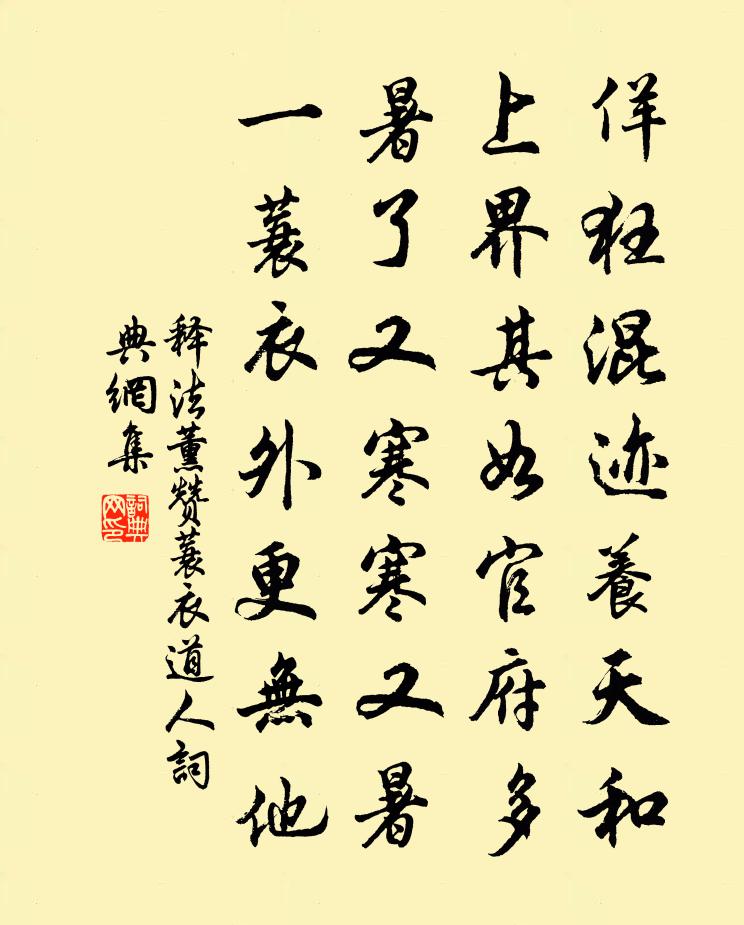 佯狂混迹养天和
上界其如官府多
暑了又寒寒又暑
一蓑衣外更無他
释法薰赞蓑衣道人詞
典網集
詞典网印